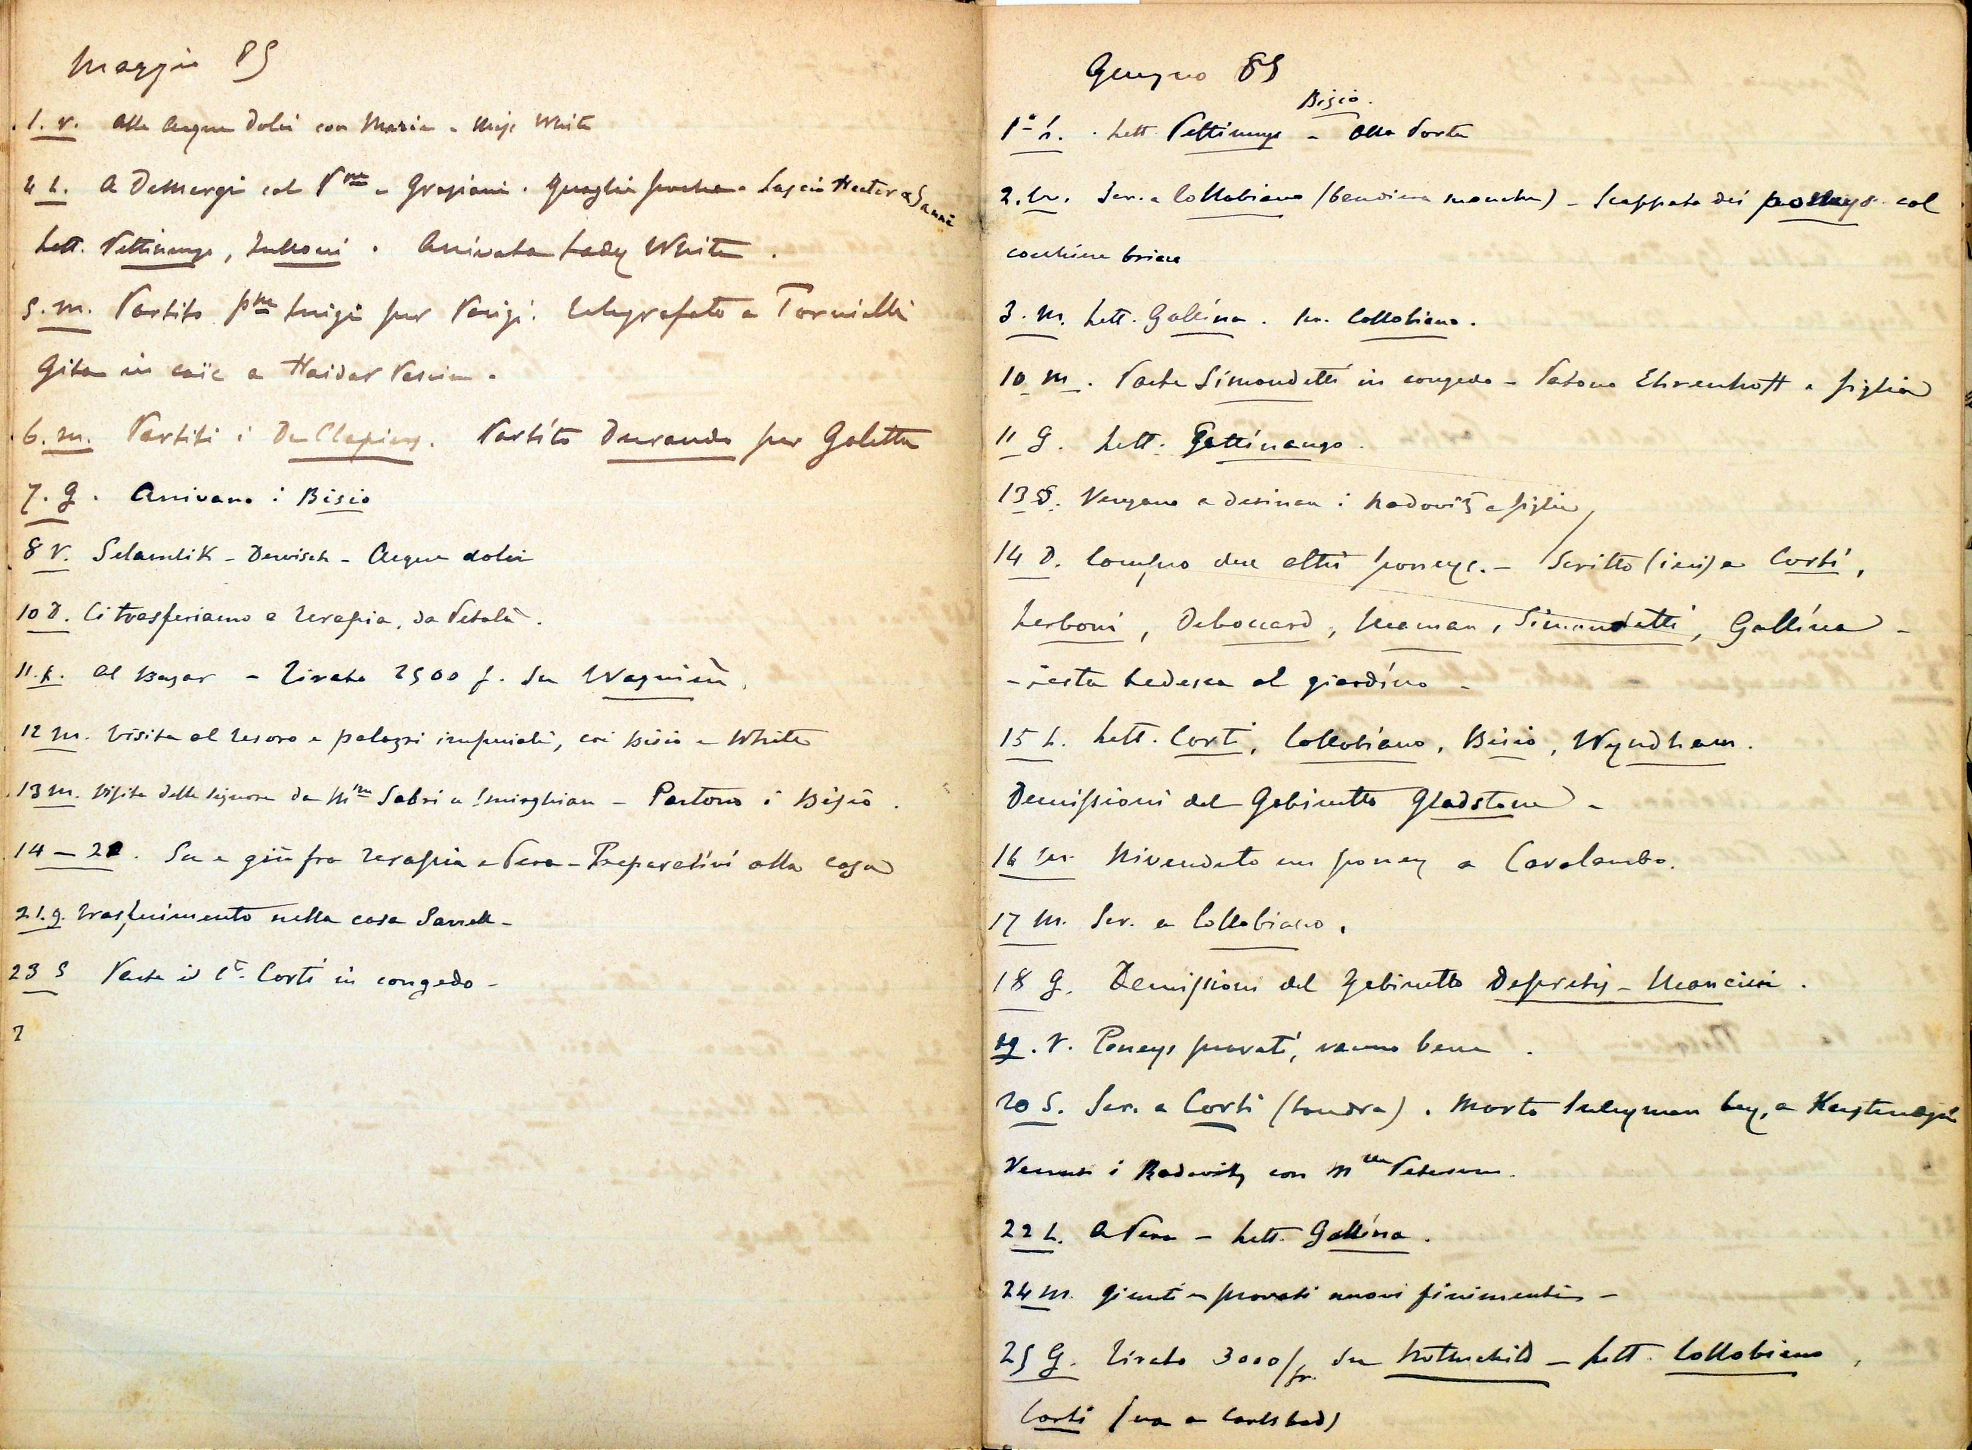 Maggio 85
1. V. Alle Acque dolci con Maria e Miss White
4 L. A Demergi col P.re e Graziani. Quaglie poche. Lascio Hector a Sannè
Lett. Pettinengo, Zulloni. Arrivata Lady White.
5. M. Partito pm Luigi per Parigi. Telegrafato a Tornielli
Gita in caïc a Haidar Pascia.
6. M. Partiti i De Clapiers. Partito Durando per Goletta
7. G. Arrivano i Bisio
8 V. Selamlik - Dervisch - Acque dolci
10 D. Ci trasferiamo a Terapia, da Petala.
11. L. Al Bazar - Tirato 2500 f. su Wagnière.
12 M. Visita al tesoro e palazzi imperiali, coi Bisio e White
13 M. Visita delle signore da Mme Sabri e Smirghian - Partono i Bisio.
14 - 21. Su e giù fra Terapia e Pera - Preparativi alla casa
21. g. Trasferimento nella casa Sarrell -
23 S Parte il Cte Corti in congedo -
2
Giugno 85
Bisio.
1º L. Lett. Pettinengo - Alla Porta
2. M. Scr. a Collobiano (bandiera manchu) - Scappata dei poneys col
cocchiere briaco
3. M. Lett. Gallina. Scr. Collobiano.
10 M. Parte Simondetti in congedo - Partono Ehrenhoff e figlia
11 G. Lett. Pettinengo.
13 S. Vengono a desinare i Radovitz e figlia
14 D. Compro due altri poneys. - Scritto (ieri) a Corti,
Zerboni, Deboccard, Maman, Simondetti, Gallina -
- Festa tedesca al giardino -
15 L. Lett. Corti, Collobiano, Bisio, Wyndham.
Demissioni del Gabinetto Gladstone -
16 M. Rivenduto un poney a Caralambo.
17 M. Scr. a Collobiano.
18 G. Demissioni del Gabinetto Depretis - Mancini.
19. V. Poneys provati, vanno bene.
20 S. Scr. a Corti (Londra). Morto Suleyman bey, a
Venuti i Radovitz con Mme Peterson.
22 L. A Pera - Lett. Gallina.
24 M. Giunti e provati nuovi finimenti -
25 G. Tirato 3000 fr. su Rothschild - Lett. Collobiano,
Corti (va a Carlsbad)